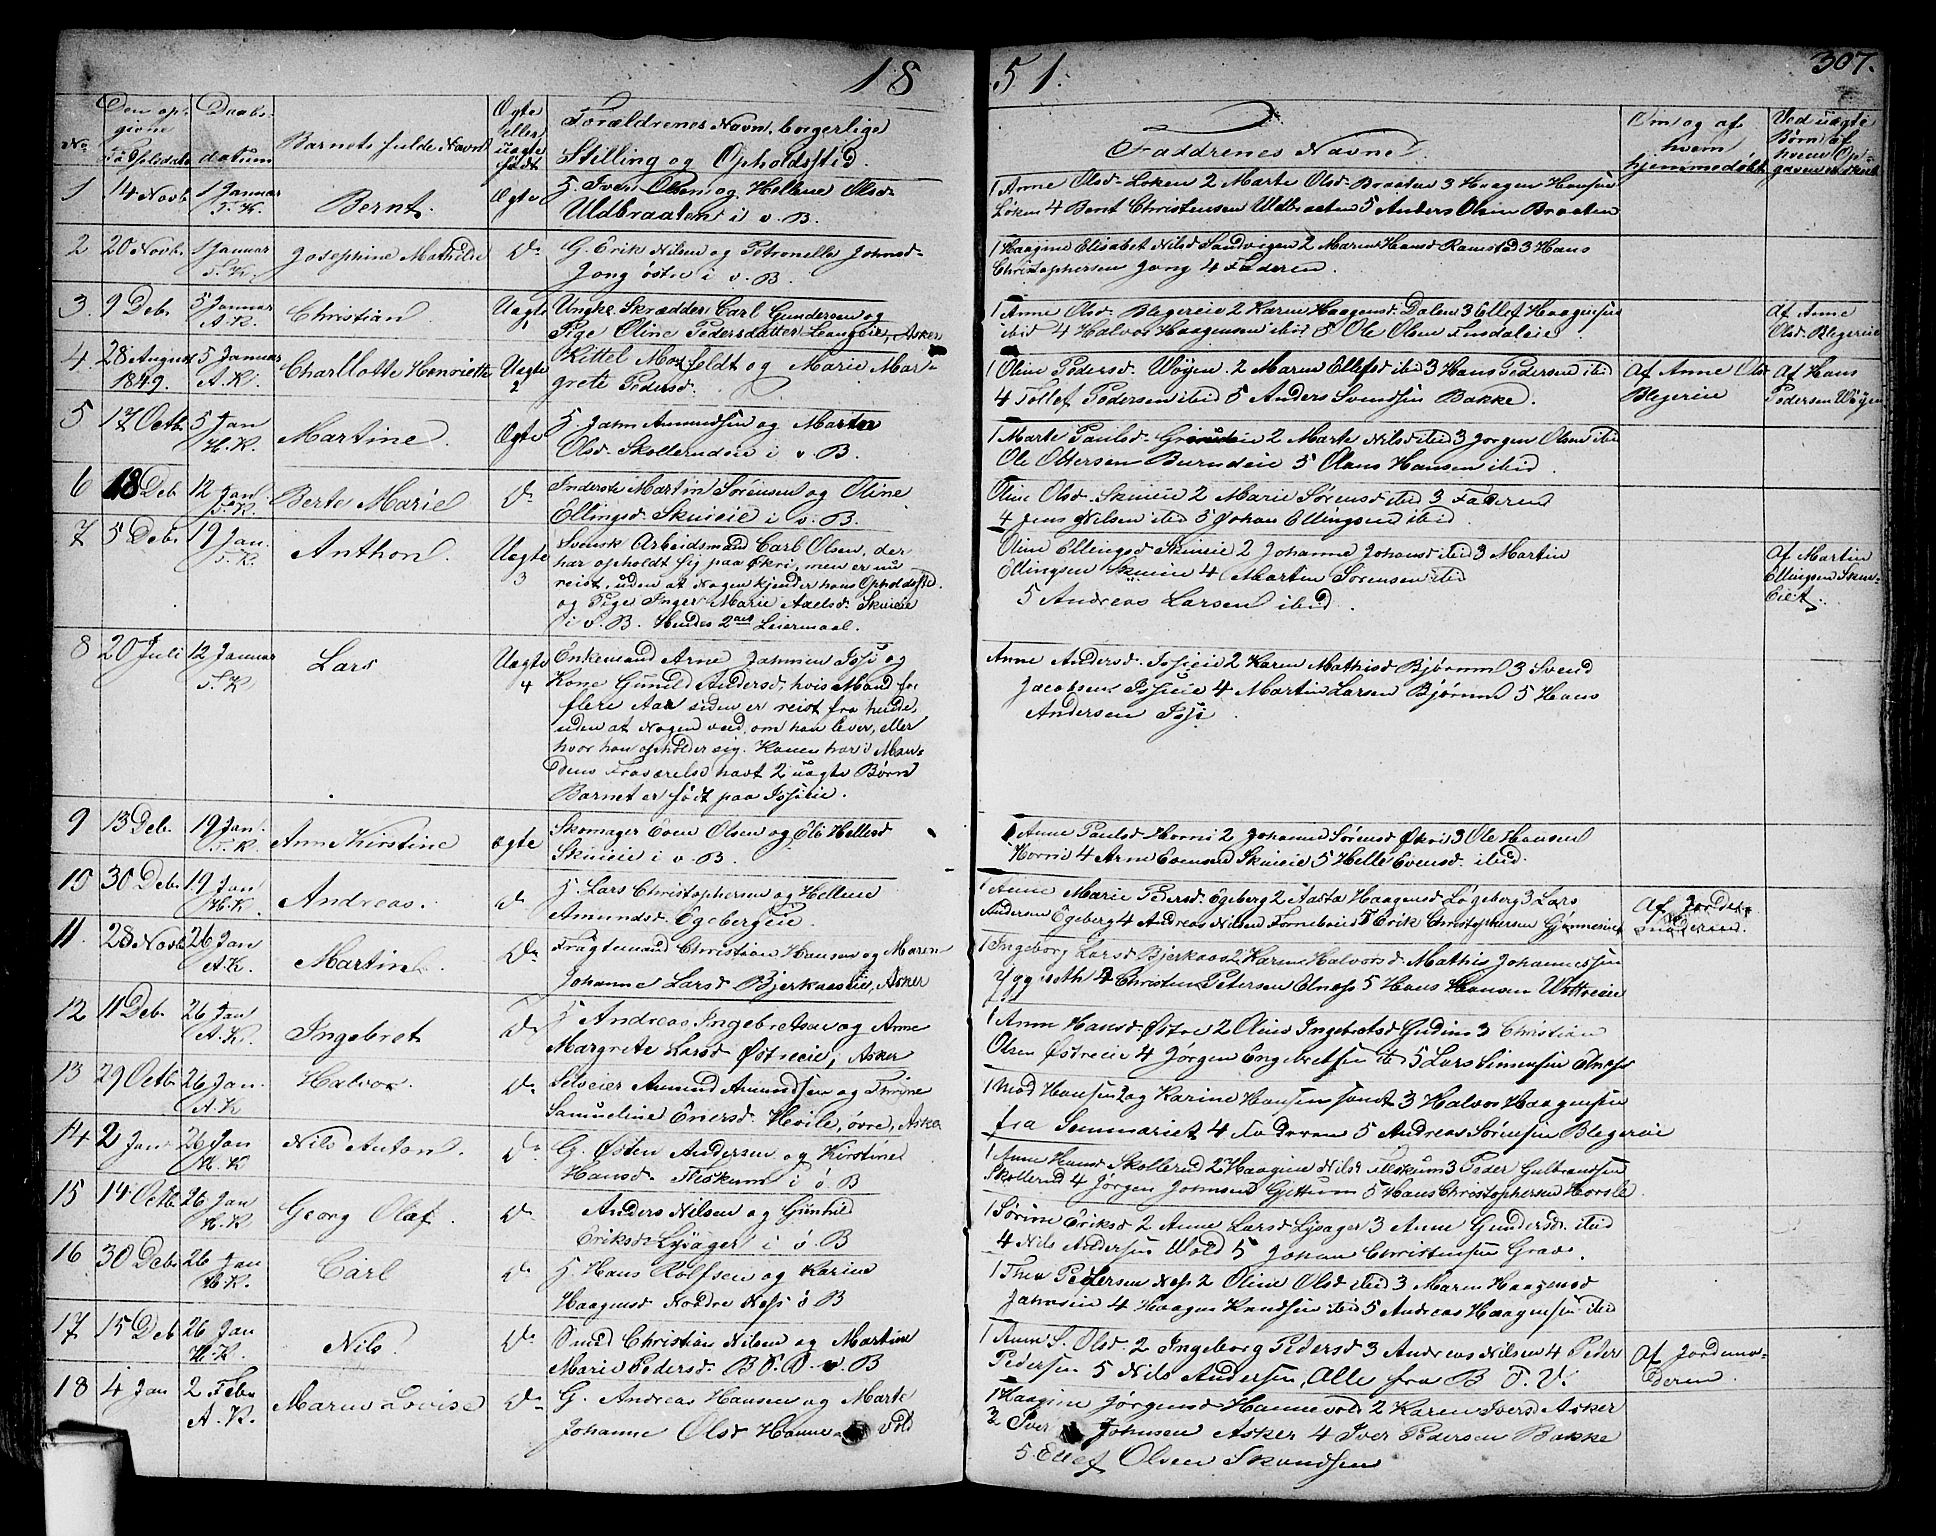 18
51.
307.
No.
Den op-
givne
Fødselsdato
Daabs-
datum
Barnets fulde Navn
Ægte
eller
uægte
født
Forældrenes Navn, borgerlige
Stilling og Opholdssted.
Faddrenes Navne
Om og af
hvem
hjemmedøbt
Ved uægte
Børn af
hvem Op-
gaven er skeet
1 14 Novb. 1 Januar
T. K.
Bernt.
Ægte
I. Iver Olsen og Hellene Olsd
Uldbraaten i v. B.
1 Anne Olsd Løken 2 Marte Olsd Braaten 3 Haagen Hansen
Løken 4 Bernt Christensen Uldbraaten 5 Anders Olsen Braaten
2 20 Novb. 1 Januar
T. K.
Josephine Mathilde
Do
G. Erik Nilsen og Petronelle Johnsd-
Jong østre i v. B.
1 Haagine Elisabet Nilsd Sandvigen 2 Maren Hansd Ramstad 3 Hans
Christophersen Jong 4 Faderen.
3 9 Deb. 5 Januar
A. K.
Christian
Uægte
1
Ungk. Skrædder Carl Gundersen og
Pige Oline Pedersdatter Langeie, Asker
1 Anne Olsd. Blegereie 2 Karen Haagensd. Dalen 3 Ellef Haagensen
ibid 4 Halvor Haagensen ibid 5 Ole Olsen Finsdaleie
Af Anne
Olsd. Blegereie
4 28 August 5 Januar
1849. A. K.
Charllotte Henriette
Uægte
2
Kittel Morfeldt og Marie Mar-
grete Pedersd.
1 Oline Pedersd. Wøyen. 2 Maren Ellefsd ibid 3 Hans Pedersen ibid
4 Tollef Pedersen ibid 5 Anders Svendsen Bakke.
Af Anne Olsd
Blegereie
Af Hans
Pedersen Wøyen
5 17 Octb. 5 Jan
H. K.
Martine.
Ægte
I. John Amundsen og Marte
Olsd. Skollerudeie i v. B.
1 Marte Paulsd. Grinieie 2 Marte Nilsd ibid 3 Jørgen Olsen ibid
Ole Ottersen Burudeie 5 Olaus Hansen ibid.
6 18 Deb 12 Jan.
T. K.
Berte Marie
Do
Inderst Martin Sørensen og Oline
Ellingsd. Skuieie i v. B.
Oline Olsd. Skuieie 2 Marie Sørensd ibid 3 Faderen
4 Jens Nilsen ibid 5 Johan Ellingsen ibid.
7 5 Deb. 19 Jan.
T. K.
Anthon.
Uægte
3
Svensk Arbeidsmand Carl Olsen, der
har opholdt sig paa Økri, men er nu
reist, uden at Nogen kjender hans Opholdssted.
og Pige Inger Marie Axelsd. Skuieie
i v. B. Hendes 2det Leiermaal.
Oline Ellingsd Skuieie 2 Johanne Johansd ibid 3 Martin
Ellingsen Skuieie 4 Martin Sørensen ibid
5 Andreas Larsen ibid.
Af Martin
Ellingsen Skui-
eiet.
8 20 Juli 12 Januar
T. K.
Lars
Uægte
4
Enkemand Arne Johnsen Issi og
Kone Gunild Andersd, hvis Mand for
flere Aar siden er reist fra hende,
uden at Nogen veed, om han lever, eller
hvor han opholder sig. Konen har i Man-
dens Fraværelse havt 2 uægte Børn
Barnet er født paa Issieie.
Anne Andersd. Issieie 2 Karen Mathisd Bjørum 3 Svend
Jacobsen Issieie 4 Martin Larsen Bjørum 5 Hans
Andersen Issi.
9 13 Deb. 19 Jan.
T. K.
Anne Kirstine
ægte
Skomager Even Olsen og Eli Hellesd
Skuieie i v. B.
1 Anne Paulsd Horni 2 Johanne Sørensd Økri 3 Ole Hansen
Horni 4 Arne Evensen Skuieie 5 Helle Evensd. ibid.
10 30 Deb. 19 Jan
H. K.
Andreas.
do
I. Lars Christophersen og Hellene
Amundsd. Egebergeie
1 Anne Marie Pedersd. Egeberg 2 Aasta Haagensd Løgeberg 3 Lars
Andersen Egeberg 4 Andreas Nilsen Fornebueie 5 Erik Christophersen Gjønneseie
Af Jorde-
moderen.
11. 28 Novb 26 Jan
A. K.
Martin
Do
Fragtemand Christian Hansen og Maren
Johanne Larsd Bjerkaaseie, Asker
1 Ingeborg Larsd Bjerkaas 2 Karen Halvorsd. Mathis Johannessen
Yggesæth 4 Christen Petersen Elnæs 5 Hans Hansen Wettreeie
12 11 Deb. 26 Jan
A. K.
Ingebret
Do
I Andreas Ingebretsen og Anne
Margrete Larsd Østreeie, Asker
1 Anne Hansd Østre 2 Oline Ingebretsd Gudim 3 Christian
Olsen Østreeie 4 Jørgen Engebretsen ibd 5 Lars Simensen Elnæs
13 29 Octb. 26 Jan.
A. K
Halvor.
Do
Selveier Amund Amundsen og Thrine
Samueline Enersd. Hvile, øvre, Asker
1 Mad Hansen 2 og Karine Hansen samt 3 Halvor Haagensen
fra Semmariet 4 Faderen 5 Andreas Sørensen Blegereie
14 2 Jan. 26 Jan
H. K
Nils Anton.
Do
G. Østen Andersen og Kirstine
Hansd. Tliskum i ø. B
1 Anne Hansd Skollerud 2 Haagine Nilsd Tliskum 3 Peder Gulbrandsen
Skollerud 4 Jørgen Johnsen Gjettum 5 Hans Christophersen Horsle
15 14 Octb. 26 Jan
H. K.
Georg Olaf.
Do
Anders Nilsen og Gunhild
Eriksd Lysager i ø. B
1 Sørine Eriksd 2 Anne Larsd Lysager 3 Anne Gundersd. ibid
4 Nils Andersen Wold 5 Johan Christensen Grav.
16 30 Deb. 26 Jan
H. K.
Carl
Do
I. Hans Rolfsen og Karine
Haagensd Nordre Næss ø B
1 Thea Pedersen Næs 2 Oline Olsd ibid 3 Maren Haagensd
Johnsen 4 Haagen Knudsen ibid 5 Andreas Haagensen ibid
17 15 Deb 26 Jan
H. K.
Nils.
Do
Smed Christian Nilsen og Martine
Marie Pedersd. B. T. V. v. B
1 Anne S. Olsd. 2 Ingeborg Pedersd 3 Andreas Nilsen 4 Peder
Pedersen 5 Nils Andersen, Alle fra B. T. V.
Af Jordemo-
deren.
18 4 Jan 2 Feb.
A. K.
Maren Lovise
Do
G. Andreas Hansen og Marte
Johanne Olsd Hannevold
1 Haagine Jørgensd Hannevold 2 Karen Iversd Asker
3 Iver Johnsen Asker 4 Iver Pedersen Bakke
5. Ellef Olsen Skundsen